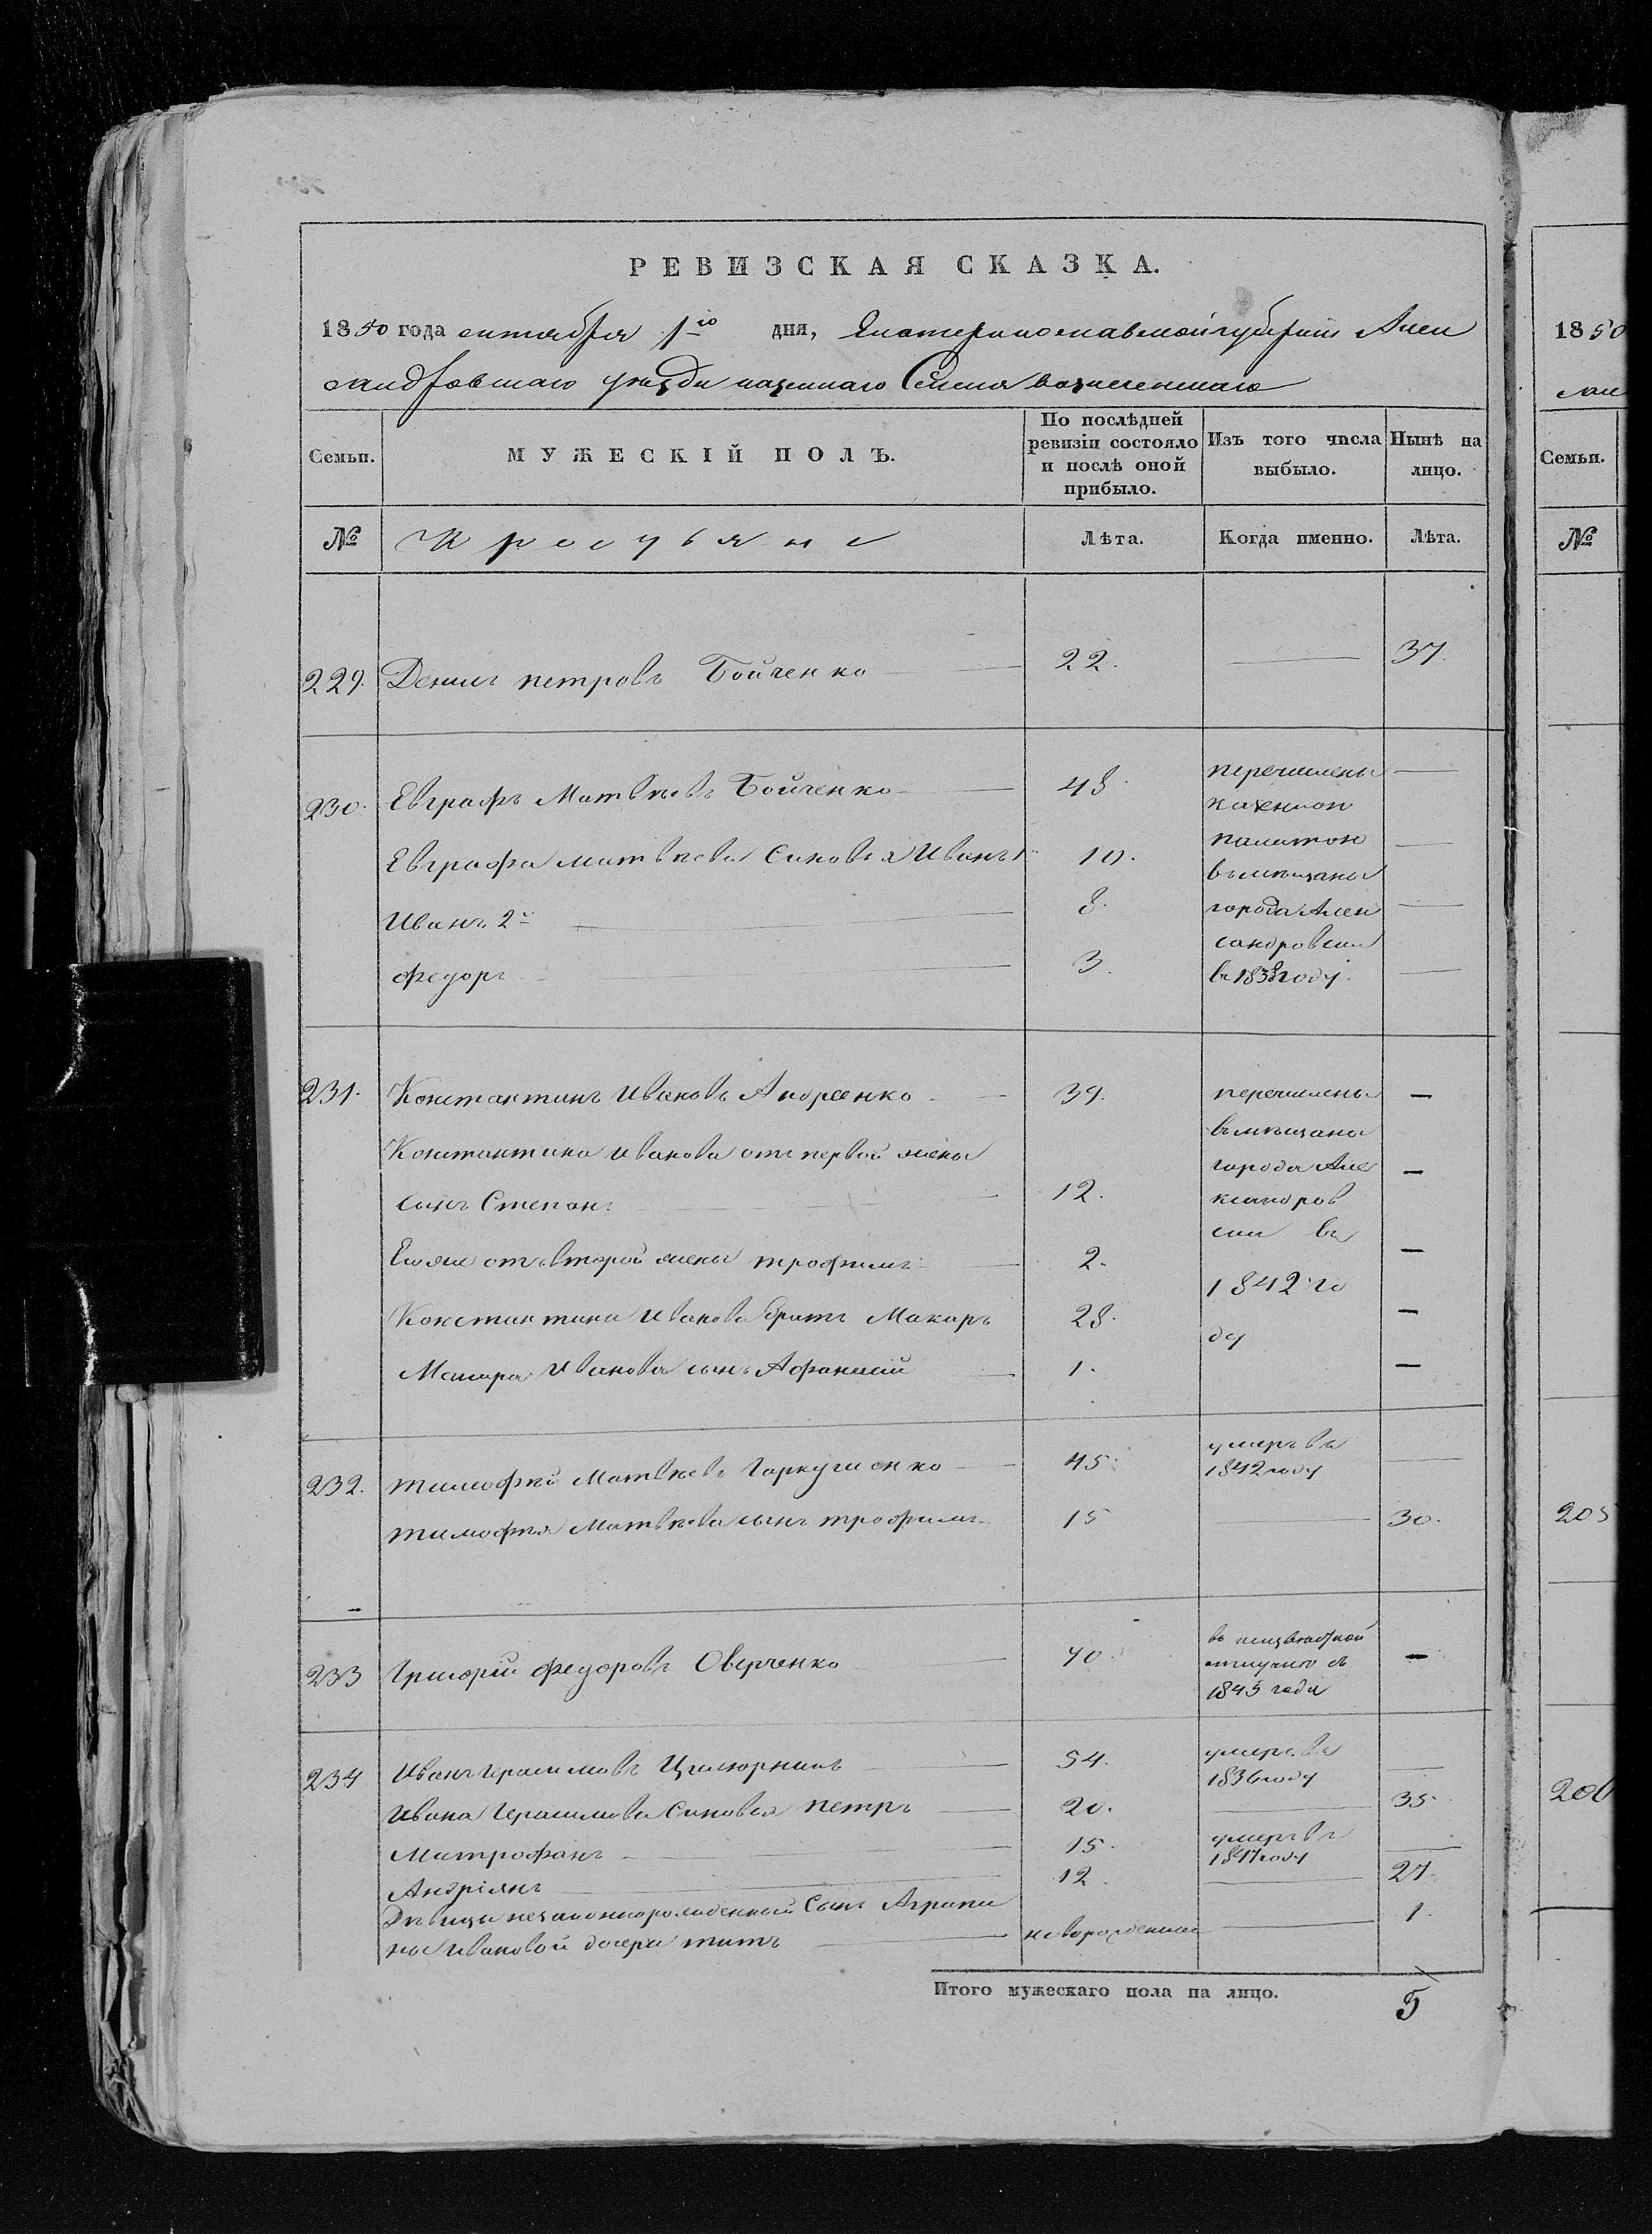 РЕВИЗСКАЯ СКАЗКА.
1850 года октября 1го дня, Екатеринославской губернiи Алек
сандровскаго уѣзда казеннаго Селенiя вознесенскаго
Семьи.
МУЖЕСКІЙ ПОЛЪ.
По послѣдней ревизіи состояло и послѣ оной прибыло.
Изъ того числа выбыло.
Нынѣ на лицо.
№ Крестьяне Лѣта. Когда именно. Лѣта.
229. Денисъ петровъ Бойченко 22. 37.
230. Евграфъ Матвѣевъ Бойченко 48. перечислены
казенной
Евграфа матвѣева Сыновья Иванъ 1й 10. палатою
въ мѣщане
Иванъ 2й 8. города Алек
сандровска
Федоръ 3. въ 1838 году.
231. Константинъ Ивановъ Андреенко 39. перечислены
въ мѣщане
Константина иванова отъ первой жены
города Але
сынъ Степанъ 12. ксандров
ска въ
Его же отъ второй жены трофимъ 2.
1842 го
Константина иванова братъ Макаръ 28.
ду
Макара Иванова сынъ Афанасiй 1.
232. тимофѣй Матвѣевъ 45. умеръ въ
1842 году
тимофѣя Матвѣева сынъ трофимъ 15 30.
233 Григорiй Федоровъ Оверченко 40. въ неизвѣстной
отлучкѣ съ
1845 года
234 Иванъ герасимовъ 54. умеръ въ
1836 году
Ивана Герасимова Сыновья петръ 20. 35.
Митрофанъ 15. умеръ въ
1847 году
Андрiянъ 12. 27.
Дѣвицы незаконнорожденный Сынъ Агрипи
ны Ивановой дочери титъ новорожденный 1.
Итого мужескаго пола на лицо. 5
1850
Семьи.
№
205
206